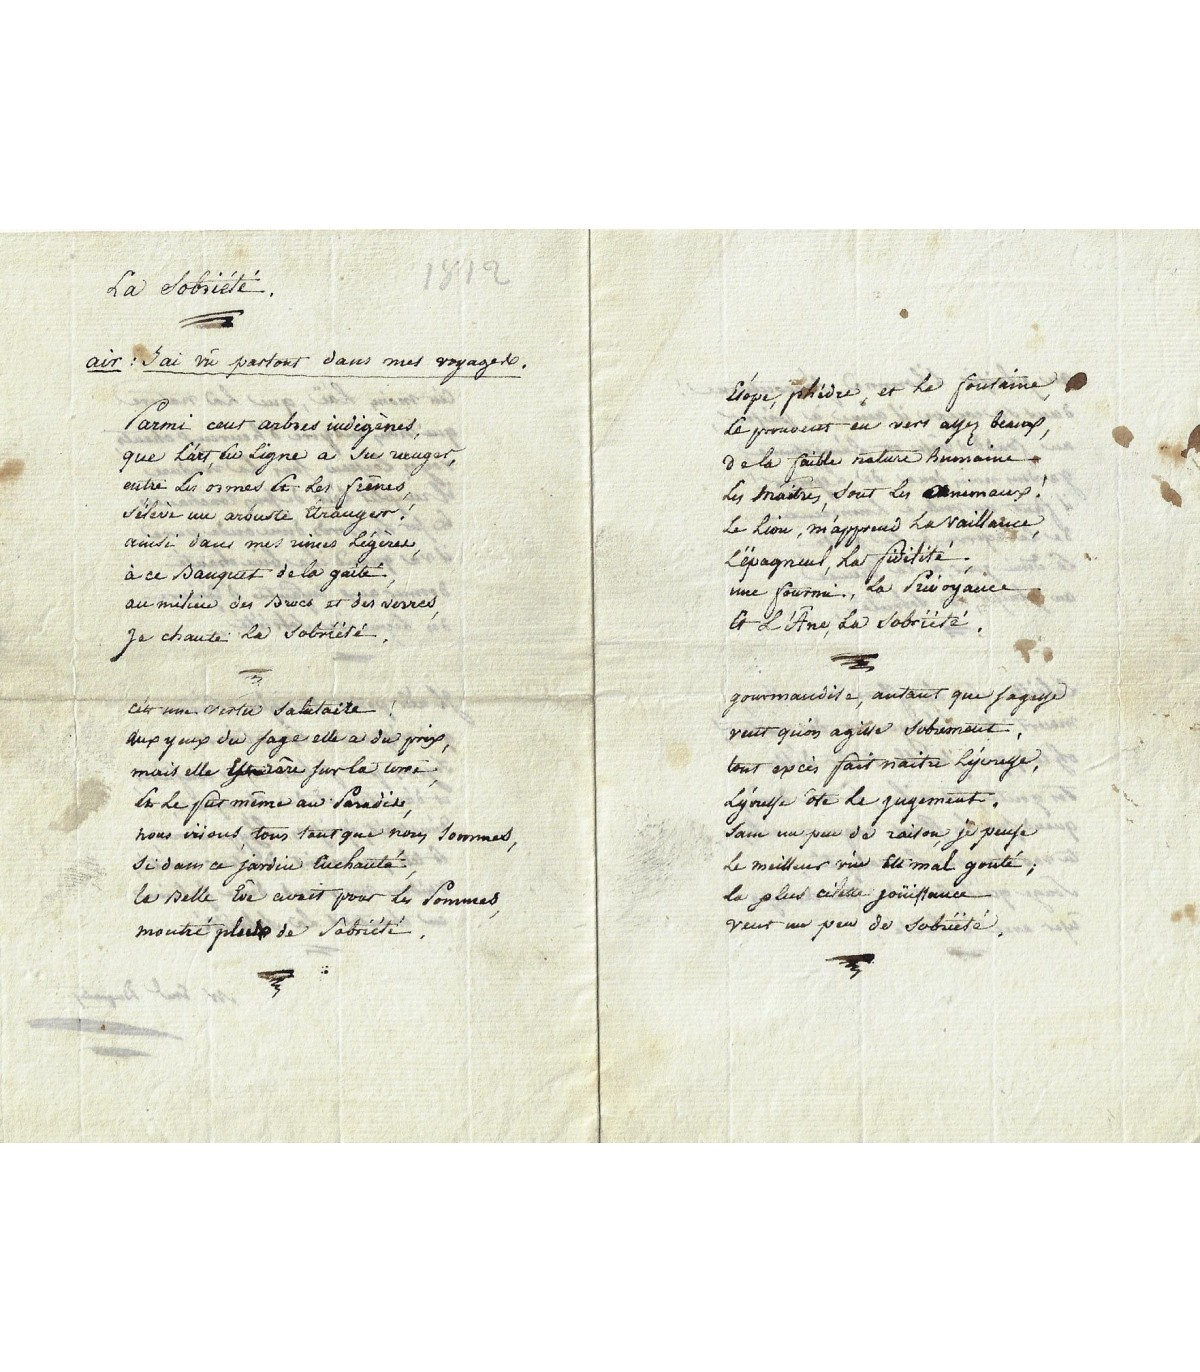 La Sobriété.
1812
air: J'ai vû partout dans mes voyages.
Parmi cent arbres indigènes,
que l'art, en ligne a su ranger,
entre Les ormes Et Les frênes,
s'élève un arbuste Etranger!
ainsi dans mes rimes Légères,
à ce Banquet de la gaité,
au milieu des Brocs et des verres,
je chante La Sobriété.
c'est une vertu salutaire!
aux yeux du sage elle a du prix,
mais elle Est rare sur la terre,
Et Le fut même au Paradis,
nous irions, tous tant que nous sommes,
si dans ce jardin Enchanté,
la Belle Eve avait pour les Pommes,
montré plus de Sobriété.
Esope, phèdre, et La fontaine,
Le prouvent en vers assez beaux,
de la faible nature humaine
Les Maitres, sont Les animaux!
Le Lion, m'apprend La vaillance,
L'épagneul, La fidélité,
une fourmi, La Prévoyance
Et L'Âne, La Sobriété.
gourmandise, autant que sagesse
veut qu'on agisse sobrement,
tout excès fait naitre L'yvresse,
L'yvresse ôte Le jugement.
sans un peu de raison, je pense
Le meilleur vin Est mal gouté;
La plus céleste joüissance
veut un peu de Sobriété.